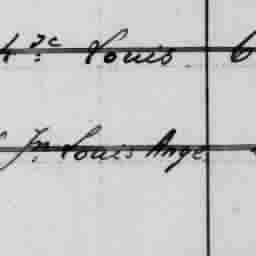 Louis 6
Jn Louis Ange